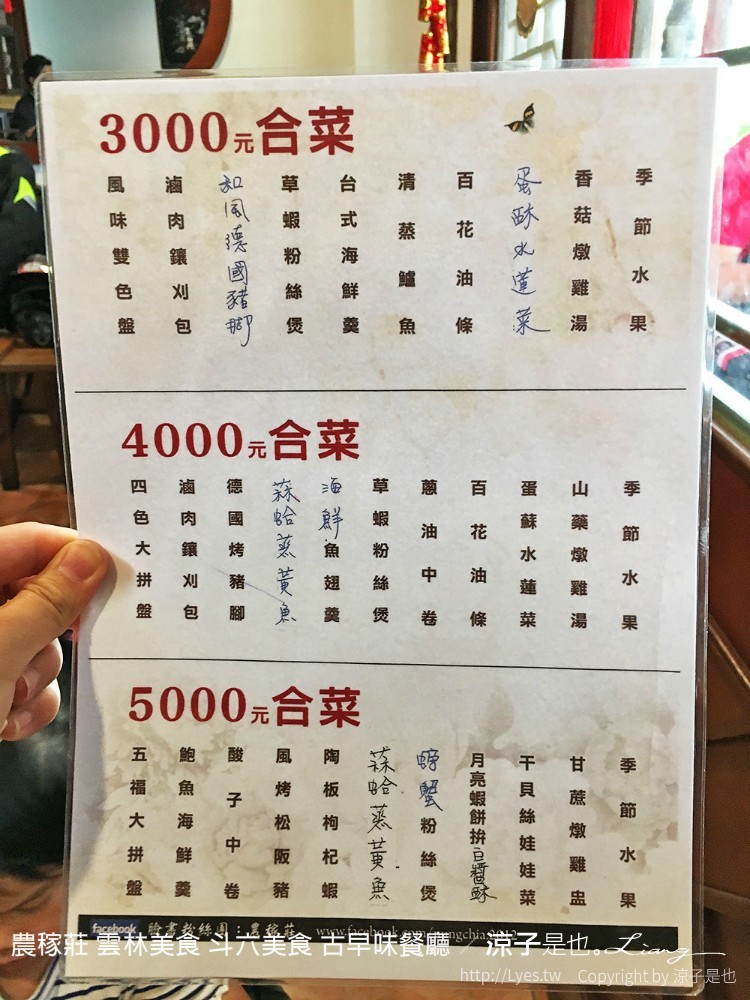 3000元合菜
風味雙色盤
滷肉鑲刈包
和風德國豬腳
草蝦粉絲煲
台式海鮮羹
清蒸鱸魚
百花油條
蛋酥水蓮菜
香菇燉雞湯
季節水果
4000元合菜
四色大拼盤
滷肉鑲刈包
德國烤豬腳
蒜蛤蒸黃魚
海鮮魚翅羹
草蝦粉絲煲
蔥油中卷
百花油條
蛋蘇水蓮菜
山藥燉雞湯
季節水果
5000元合菜
五福大拼盤
鮑魚海鮮羹
酸子中卷
風烤松阪豬
陶板枸杞蝦
蒜蛤蒸黃魚
螃蟹粉絲煲
月亮蝦餅拚豆醬酥
干貝絲娃娃菜
甘蔗燉雞盅
季節水果
facebook 臉書粉絲團：農稼莊
農稼莊 雲林美食 斗六美食 古早味餐廳 / 涼子是也。Liang
http://Lyes.tw Copyright by 涼子是也